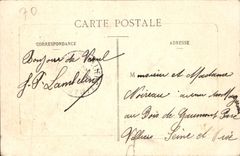 70
CARTE POSTALE
CORRESPONDANCE
ADRESSE
Bonjour de Vesoul
J. P. Lambelin
Monsieur et Madame
Noireau avenue
au Bois de Gaumont Parc
Villiers Seine et Oise